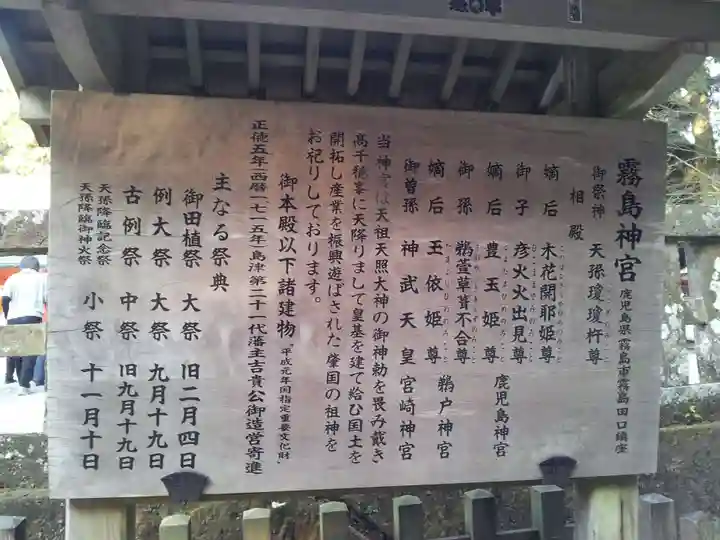 霧島神宮 鹿児島県霧島市霧島田口鎮座
御祭神 天孫瓊瓊杵尊
相殿
嫡后 木花開耶姫尊
御子 彦火火出見尊
嫡后 豊玉姫尊 鹿児島神宮
御孫 鵜萱草葺不合尊
嫡后 玉依姫尊 鵜戸神宮
御曽孫 神武天皇 宮崎神宮
当神宮は天祖天照大神の御神勅を畏み戴き
高千穂峯に天降りまして皇基を建て給ひ国土を
開拓し産業を振興遊ばされた肇国の祖神を
お祀りしております。
御本殿以下諸建物 〝平成元年国指定重要文化財〟
正徳五年(西暦一七一五年)島津第二十一代藩主吉貴公御造営寄進
主なる祭典
御田植祭 大祭 旧二月四日
例大祭 大祭 九月十九日
古例祭 中祭 旧九月十九日
天孫降臨記念祭
天孫降臨御神火祭 小祭 十一月十日